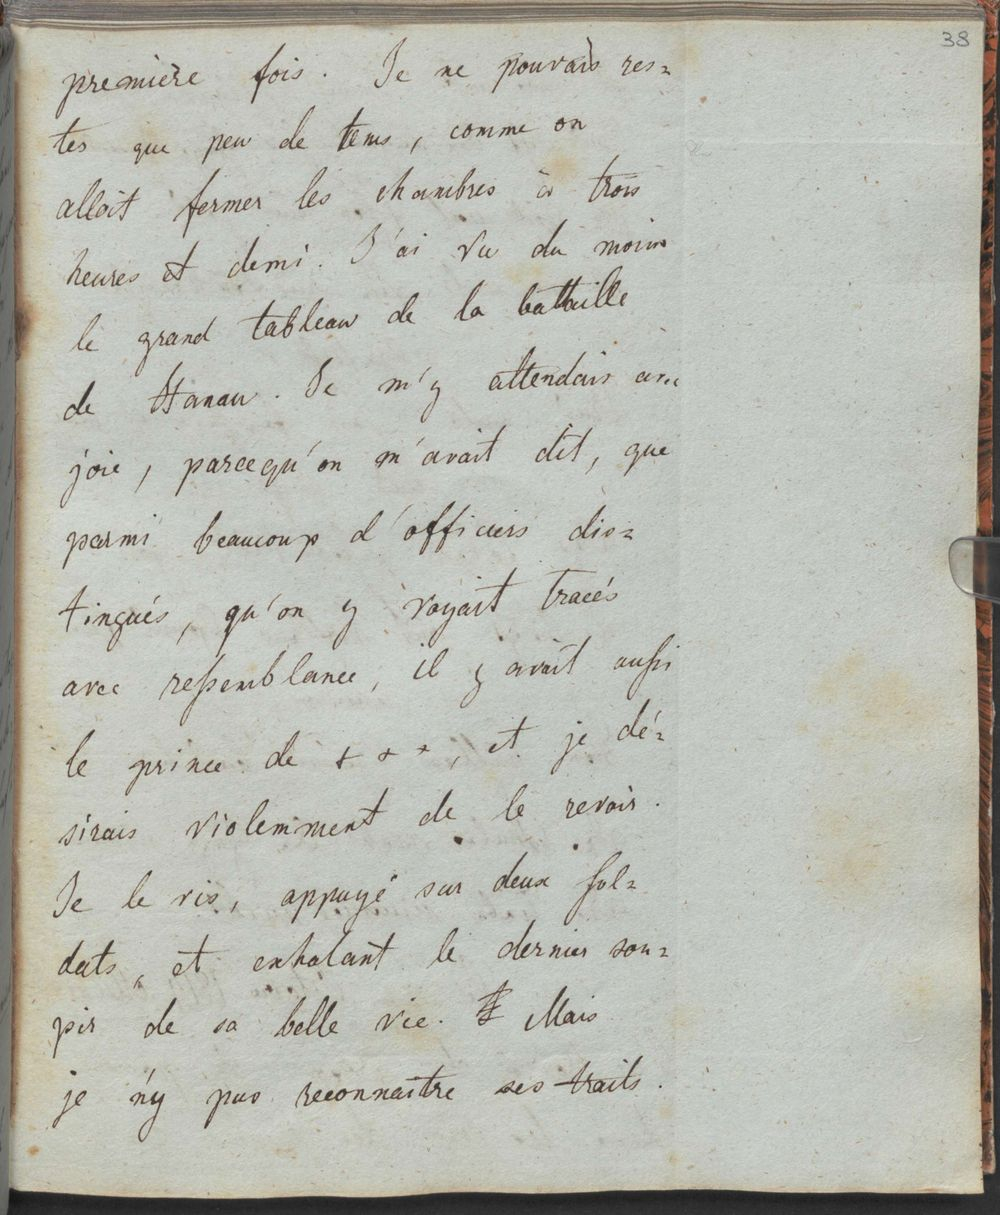 38
première fois. Je ne pouvais res=
tes que peu de tems, comme on
alloit fermer les chambres à trois
heures et demi. J'ai vu du moins
le grand tableau de la battaille
de Hanau. Je m'y attendais avec
joie, parcequ'on m'avait dit, que
parmi beaucoup d'officiers dis=
tingués, qu'on y voyait tracés
avec reſsemblance, il y avait auſsi
le prince de + + +, et je dé=
sirais violemment de le revoir.
Je le vis, appuyé sur deux sol=
dats, et exhalant le dernier sou=
pir de sa belle vie. Mais
je n'y pus reconnaitre ses traits.